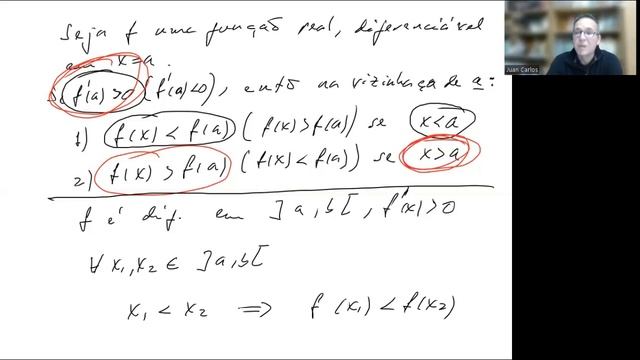 Seja f uma função real, diferenciável
em x=a.
Se f'(a)>0 (f'(a)<0), então na vizinhaça de a:
1) f(x) < f(a) (f(x)>f(a)) se x<a
2) f(x) > f(a) (f(x)<f(a)) se x>a
f é dif. em ]a,b[, f'(x)>0
∀ x₁,x₂ ∈ ]a,b[
x₁ < x₂ ⟹ f(x₁) < f(x₂)
Juan Carlos